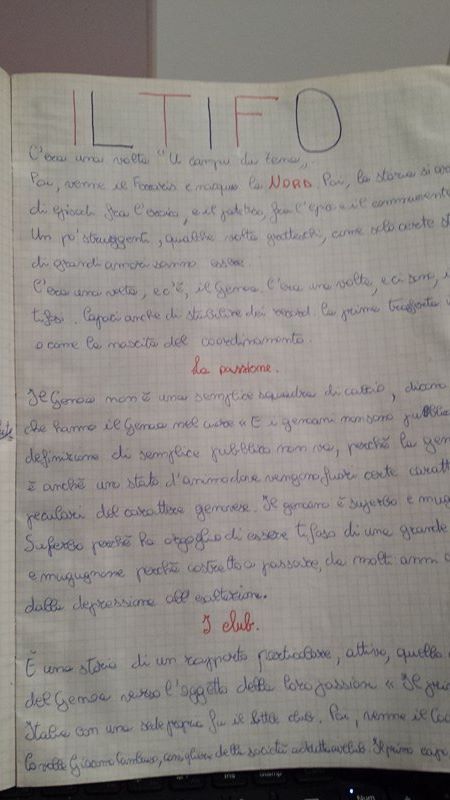 IL TIFO
C'era una volta "U campu da tera".
Poi, venne il Ferraris e nacque la NORD. Poi, la storia si
di episodi fra l'eroico, e il patetico, fra l'epico e il commovente
Un po' struggenti, qualche volta grotteschi, come solo certe
di grandi amori sanno essere.
C'era una volta, e c'è, il Genoa. C'era una volta, e ci sono, i
tifosi. Capaci anche di stabilire dei record. La prima trasferta
o come la nascita del coordinamento.
La passione.
Il Genoa non è una semplice squadra di calcio, dicono
che hanno il Genoa nel cuore « E i genoani non sono pubblico
definizione di semplice pubblico non va, perchè la
è anche uno stato d'animo dove vengono fuori certe
peculiari del carattere genovese. Il genoano è superbo e
Superbo perchè ha orgoglio di essere tifoso di una grande
e mugugnone perchè costretto a passare, da molti anni
dalla depressione all'esaltazione.
I club.
È una storia di un rapporto particolare, attivo, quello
del Genoa verso l'oggetto della loro passione « Il
Italia con una sede propria fu il little club. Poi, venne il
Lo volle Giacomo Cambiaso, consigliere della società Il primo capo